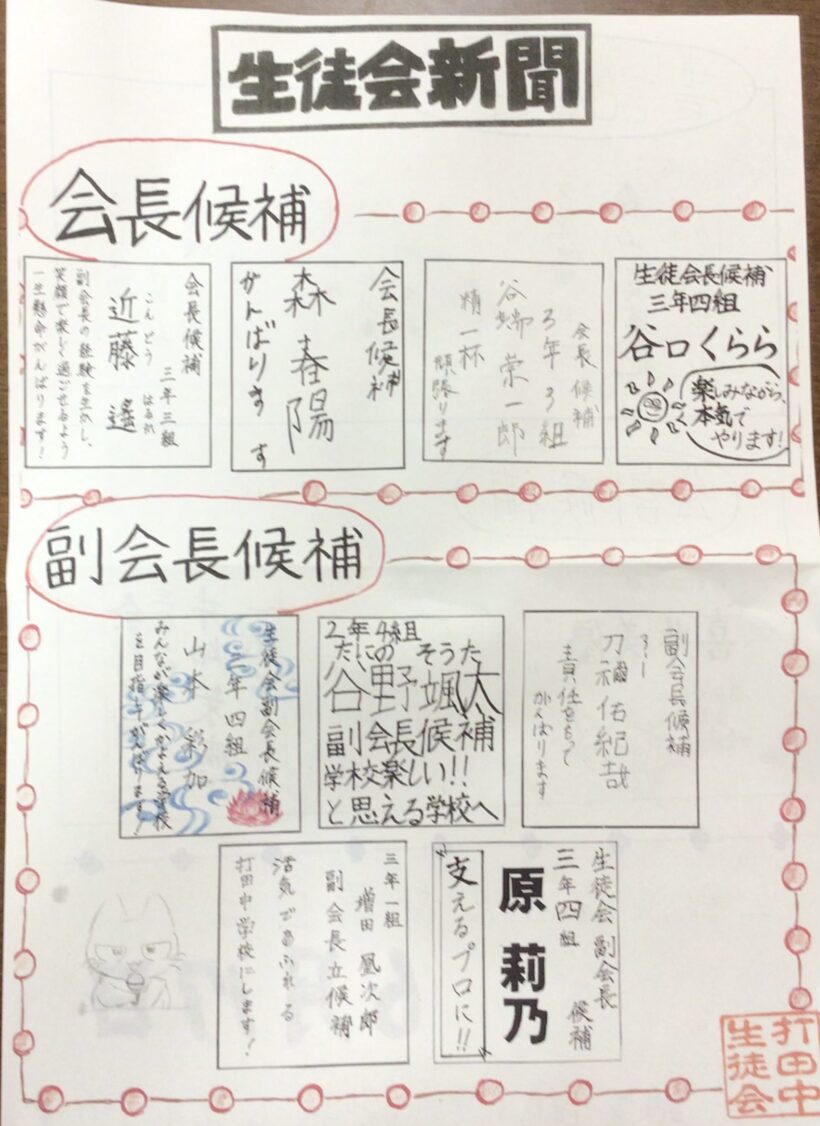 生徒会新聞
会長候補
生徒会長候補
三年四組
谷口くらら
楽しみながら、
本気で
やります!
会長候補
3年3組
谷端栄一郎
精一杯
頑張ります
会長候補
森春陽
がんばります
会長候補
三年三組
こんどう はるか
近藤 遙
副会長の経験を生かし、
笑顔で楽しく過ごせるよう
一生懸命がんばります!
副会長候補
副会長候補
3-1
刀禰佑紀哉
責任をもって
がんばります
2年4組
たにの そうた
谷野颯太
副会長候補
学校楽しい!!
と思える学校へ
生徒会副会長候補
二年四組
山本 彩加
みんなが楽しくかよえる学校
を目指してがんばります!
生徒会副会長
候補
三年四組
原 莉乃
"支えるプロに!!"
三年一組
増田凰次郎
副会長立候補
活気であふれる
打田中学校にします!
打田中
生徒会